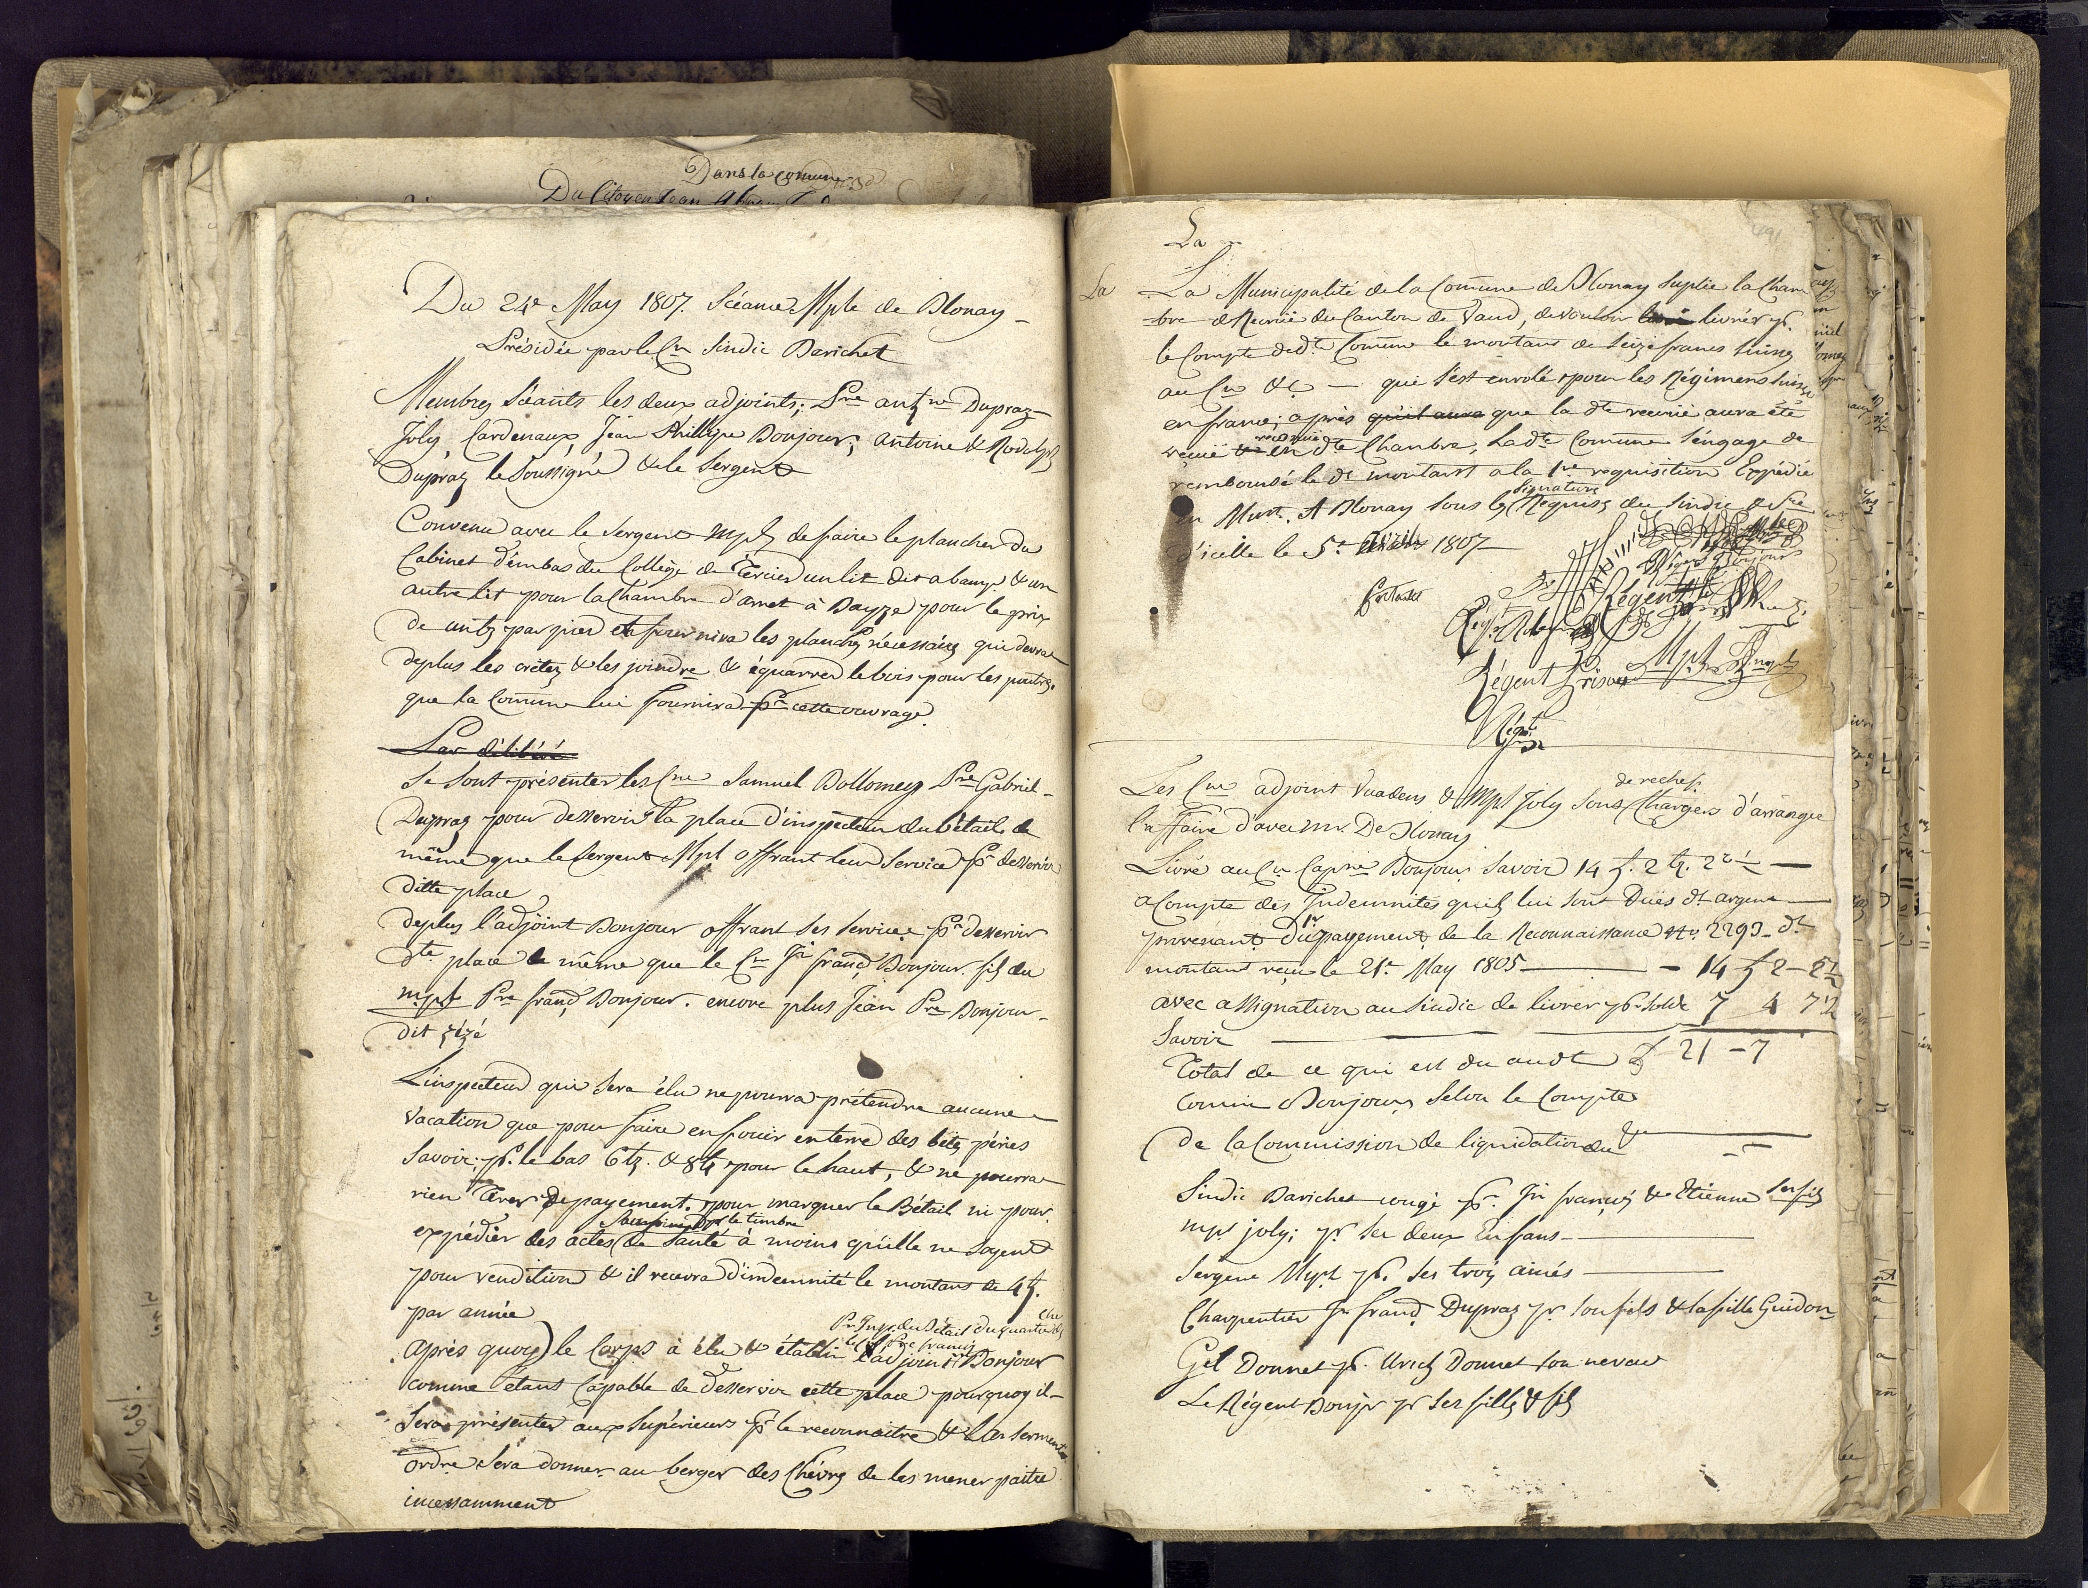 Dans la comune
Du Citoyen Jean
Du 24e May 1807. Scéance Mple de Blonay
Présidée par le Cn Sindic Barichet
Membres Scéants les deux adjoints; Pre antne Dupraz
Joly, Cardenaux, Jean Phillipe Bonjour; antoine & Rodolph
Dupraz le Soussigné & le Sergent
Convenu avec le Sergent Mpl de faire le plancher du
Cabinet d'embas du Collège de Tercier un lit dit a banx & un
autre lit pour la Chambre d'arret à Bayze pour le prix
de par pied et fournira les planches nécessaires qui devra
deplus les crêter & les joindre & équarrer le bois pour les poutres
que la Comune lui fournira pr cette ouvrage.
Par délibéré
Se sont présenter les Cns Samuel Dollomey Pre Gabriel
Dupraz pour desservir la place d'inspecteur du bétail de
même que le Sergent Mpl offrant leur Service pr desservir
ditte place
deplus l'adjoint Bonjour offrant ses services pr desservir
dte place de même que le Cn Jn franç Bonjour fils du
mpl Pre franç Bonjour. encore plus Jean Pre Bonjour
dit zizé
L'inspecteur qui Sera élu ne pourra prétendre aucune
vacation que pour faire enfouir enterre des bêtes péries
Savoir; pr. le bas 6 tz. & 8 tz pour le haut, & ne pourra
rien de payement. pour marquer le Bétail ni pour
le timbre
expédier des actes de Santé à moins qu'ille ne soyent
pour vendition & il recevra d'indemnité le montant de 4 f.
par année
Pr Insp. du Bétail du quartier
après quoy le Corps à élu & établi l'adjoint Bonjour
comme étant Capable de desservir cette place pourquoy il
Sera présenter aux Supérieurs pr le reconnaitre &
ordre Sera donner au berger des Chèvres de les mener paitre
incessamment
La
La
La Municipalité de la Comune de Blonay Suplie la Cham
bre de Recruë du Canton de Vaud, de vouloir livrér pr.
le Compte de dte Comune le montant de Seize francs Suisses
au Cn &c — qui s'est enrolé pour les Régimens Suisse
en france; après qu'il aura que la dte recruë aura été
reconnuë
reçuë & en dte Chambre, Ladte Comune s'engage de
remboursé le dt montant a la 1re requisition Expédié
signature
en Mun. A Blonay sous les Requises du Sindic & Sec
d'icelle le 5e 1807
Régent
Régent Mpl
Régt
de rechef
Les Cns adjoint Vuadens & Mpl Joly Sons Chargers d'arranger
l'affaire d'avec Mr. De Blonay
Livré au Cn Bonjour Savoir 14 f. 2 tz. 2
a Compte des Indemnités quil lui sont Duës dt argent
provenant du payement de la Reconnaissance No 2293 dt
montant reçu le 21e May 1805 — 14 f 2
avec assignation au Sindic de livrer pr Solde 7 4 7½
Savoir
Total de ce qui est du audt £ 21 - 7
Comin Bonjour Selon le Compte
de la Commission de liquidation du
Sindic Barichet congé pr. Jn françois & Etienne ses fils
mpl joly; pr Ses deux Enfans
Sergent Mpl pr. Ses trois ainés
Charpentier Jn franç Dupraz pr son fils & la fille Guidon
Gel Donnet pr. Urich Donnet son neveu
Le Régent Bonjr pr Ses filles & fils